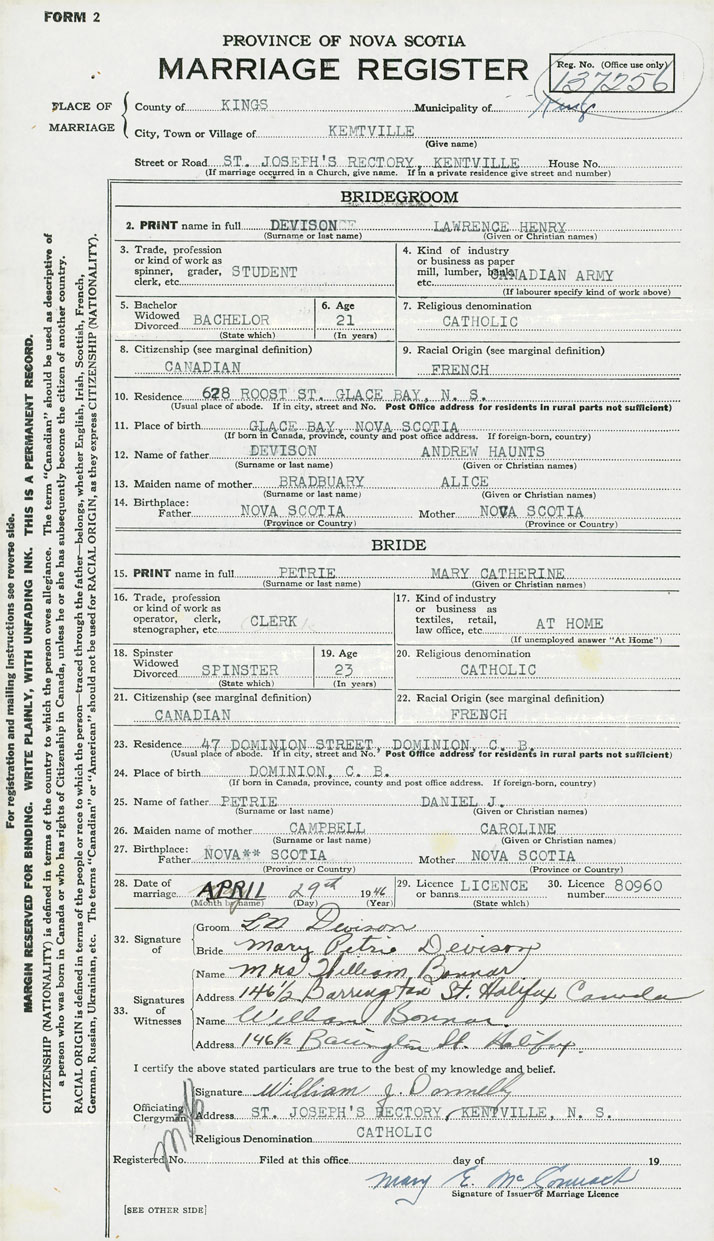 FORM 2
PROVINCE OF NOVA SCOTIA
MARRIAGE REGISTER
Reg. No. (Office use only)
137256
PLACE OF MARRIAGE
County of KINGS Municipality of Kings
City, Town or Village of KEMTVILLE
(Give name)
Street or Road ST. JOSEPH'S RECTORY, KENTVILLE House No.
(If marriage occurred in a Church, give name. If in a private residence give street and number)
BRIDEGROOM
2. PRINT name in full DEVISON LAWRENCE HENRY
(Surname or last name) (Given or Christian names)
3. Trade, profession or kind of work as spinner, grader, clerk, etc. STUDENT
4. Kind of industry or business as paper mill, lumber, bank, etc. CANADIAN ARMY
(If labourer specify kind of work above)
5. Bachelor Widowed Divorced BACHELOR
(State which)
6. Age 21
(In years)
7. Religious denomination
CATHOLIC
8. Citizenship (see marginal definition)
CANADIAN
9. Racial Origin (see marginal definition)
FRENCH
10. Residence 628 ROOST ST. GLACE BAY, N. S.
(Usual place of abode. If in city, street and No. Post Office address for residents in rural parts not sufficient)
11. Place of birth GLACE BAY, NOVA SCOTIA
(If born in Canada, province, county and post office address. If foreign-born, country)
12. Name of father DEVISON ANDREW HAUNTS
(Surname or last name) (Given or Christian names)
13. Maiden name of mother BRADBUARY ALICE
(Surname or last name) (Given or Christian names)
14. Birthplace:
Father NOVA SCOTIA Mother NOVA SCOTIA
(Province or Country) (Province or Country)
BRIDE
15. PRINT name in full PETRIE MARY CATHERINE
(Surname or last name) (Given or Christian names)
16. Trade, profession or kind of work as operator, clerk, stenographer, etc. CLERK
17. Kind of industry or business as textiles, retail, law office, etc. AT HOME
(If unemployed answer "At Home")
18. Spinster Widowed Divorced SPINSTER
(State which)
19. Age 23
(In years)
20. Religious denomination
CATHOLIC
21. Citizenship (see marginal definition)
CANADIAN
22. Racial Origin (see marginal definition)
FRENCH
23. Residence 47 DOMINION STREET, DOMINION, C. B.
(Usual place of abode. If in city, street and No. Post Office address for residents in rural parts not sufficient)
24. Place of birth DOMINION, C. B.
(If born in Canada, province, county and post office address. If foreign-born, country)
25. Name of father PETRIE DANIEL J.
(Surname or last name) (Given or Christian names)
26. Maiden name of mother CAMPBELL CAROLINE
(Surname or last name) (Given or Christian names)
27. Birthplace:
Father NOVA** SCOTIA Mother NOVA SCOTIA
(Province or Country) (Province or Country)
28. Date of marriage APRIL 29th 1946
(Month by name) (Day) (Year)
29. Licence or banns LICENCE
(State which)
30. Licence number 80960
32. Signature of
Groom LH Devison
Bride Mary Petrie Devison
33. Signatures of Witnesses
Name Mrs William Bonnar
Address 146½ Barrington St. Halifax Canada
Name William Bonnar
Address 146½ Barrington St. Halifax.
I certify the above stated particulars are true to the best of my knowledge and belief.
Officiating Clergyman
Signature William J. Donnelly
Address ST. JOSEPH'S RECTORY, KENTVILLE, N. S.
Religious Denomination CATHOLIC
Registered No. Filed at this office day of 19
Mary E.
Signature of Issuer of Marriage Licence
[SEE OTHER SIDE]
For registration and mailing instructions see reverse side.
MARGIN RESERVED FOR BINDING. WRITE PLAINLY, WITH UNFADING INK. THIS IS A PERMANENT RECORD.
CITIZENSHIP (NATIONALITY) is defined in terms of the country to which the person owes allegiance. The term "Canadian" should be used as descriptive of
a person who was born in Canada or who has rights of Citizenship in Canada, unless he or she has subsequently become the citizen of another country.
RACIAL ORIGIN is defined in terms of the people or race to which the person—traced through the father—belongs, whether English, Irish, Scottish, French,
German, Russian, Ukrainian, etc. The terms "Canadian" or "American" should not be used for RACIAL ORIGIN, as they express CITIZENSHIP (NATIONALITY).